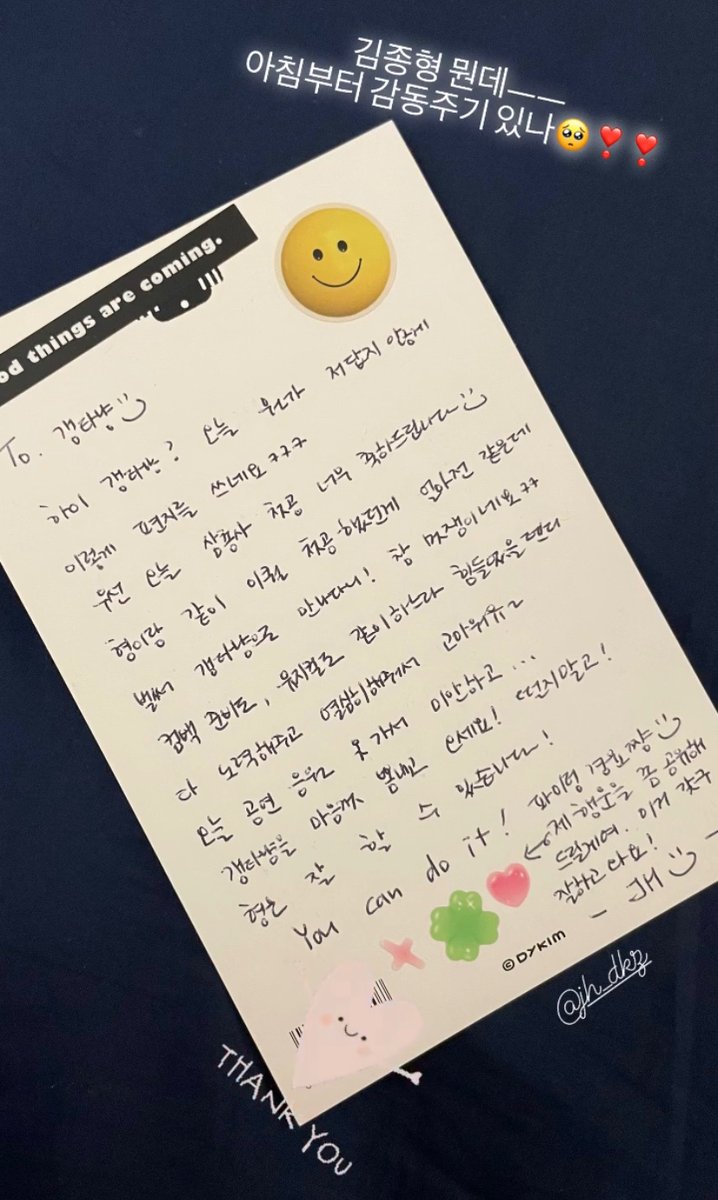 김종형 뭔데ㅡㅡ
아침부터 감동주기 있나🥺❣️❣️
od things are coming.
To. 갱타냥
하이 갱타냥? 오늘 뭔가 저답지 않게
이렇게 편지를 쓰네요 ㅋㅋㅋ
우선 오늘 삼총사 첫공 너무 축하드립니다
형이랑 같이 이퀄 첫공했던게 얼마전 같은데
벌써 갱타냥으로 만나다니! 참 멋쟁이네요 ㅋㅋ
컴백 준비도, 뮤지컬도 같이하느라 힘들었을텐데
다 노력해주고 열심히해주셔서 고마워유~
오늘 공연 응원 못가서 미안하고...
갱타냥을 마음껏 뽐내고 오세요! 떤지말고!
형은 잘 할 수 있습니다!
You can do it! 파이팅 경호쨩
제 행운을 쫌 공유해
드릴게여. 이거 갖구
잘하고 와요!
- JH -
©DYKIM
@jh_dkz
THANK YOU